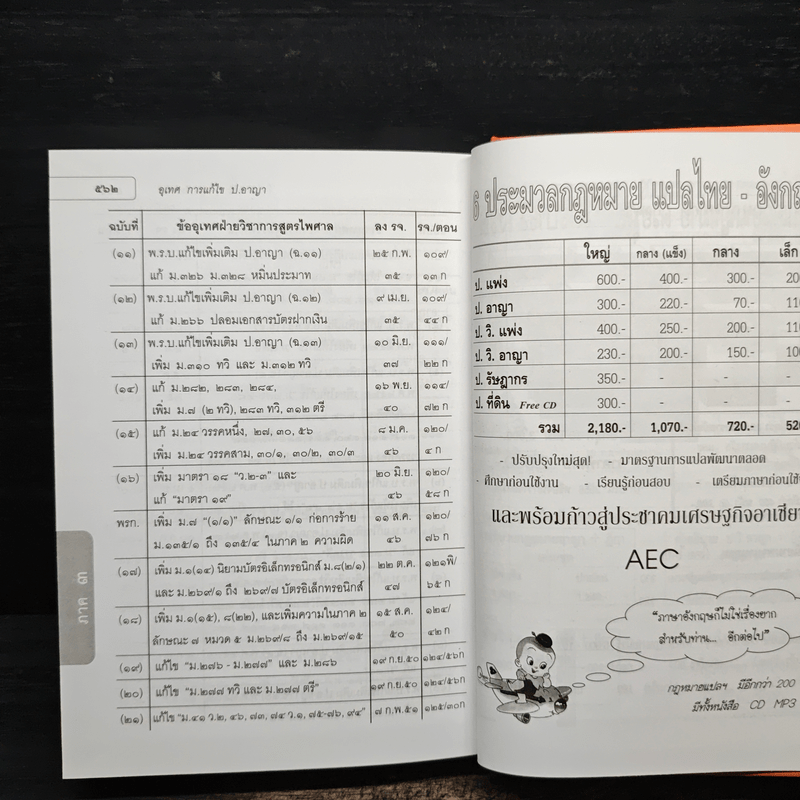 ๕๖๒ อุเทศ การแก้ไข ป.อาญา
ฉบับที่ ข้ออุเทศฝ่ายวิชาการสูตรไพศาล ลง รจ. รจ./ตอน
(๑๑) พ.ร.บ.แก้ไขเพิ่มเติม ป.อาญา (ฉ.๑๑) ๒๕ ก.พ. ๑๐๙/
แก้ ม.๓๒๖ ม.๓๒๘ หมิ่นประมาท ๓๕ ๑๓ ก
(๑๒) พ.ร.บ.แก้ไขเพิ่มเติม ป.อาญา (ฉ.๑๒) ๙ เม.ย. ๑๐๙/
แก้ ม.๒๖๖ ปลอมเอกสารบัตรฝากเงิน ๓๕ ๔๔ ก
(๑๓) พ.ร.บ.แก้ไขเพิ่มเติม ป.อาญา (ฉ.๑๓) ๑๐ มิ.ย. ๑๑๑/
เพิ่ม ม.๓๑๐ ทวิ และ ม.๓๑๒ ทวิ ๓๗ ๒๒ ก
(๑๔) แก้ ม.๒๘๒, ๒๘๓, ๒๘๔, ๑๖ พ.ย. ๑๑๔/
เพิ่ม ม.๗ (๒ ทวิ), ๒๘๓ ทวิ, ๓๑๒ ตรี ๔๐ ๗๒ ก
(๑๕) แก้ ม.๒๔ วรรคหนึ่ง, ๒๗, ๓๐, ๕๖ ๘ ม.ค. ๑๒๐/
เพิ่ม ม.๒๔ วรรคสาม, ๓๐/๑, ๓๐/๒, ๓๐/๓ ๔๖ ๔ ก
(๑๖) เพิ่ม มาตรา ๑๘ "ว.๒-๓" และ ๒๐ มิ.ย. ๑๒๐/
แก้ "มาตรา ๑๙" ๔๖ ๕๘ ก
พรก. เพิ่ม ม.๗ "(๑/๑)" ลักษณะ ๑/๑ ก่อการร้าย ๑๑ ส.ค. ๑๒๐/
ม.๑๓๕/๑ ถึง ๑๓๕/๔ ในภาค ๒ ความผิด ๔๖ ๗๖ ก
(๑๗) เพิ่ม ม.๑(๑๔) นิยามบัตรอิเล็กทรอนิกส์ ม.๘(๒/๑) ๒๒ ต.ค. ๑๒๑พิ/
และ ม.๒๖๙/๑ ถึง ๒๖๙/๗ บัตรอิเล็กทรอนิกส์ ๔๗ ๖๕ ก
(๑๘) เพิ่ม ม.๑(๑๕), ๘(๒๒), และเพิ่มความในภาค ๒ ๑๕ ส.ค. ๑๒๔/
ลักษณะ ๗ หมวด ๕ ม.๒๖๙/๘ ถึง ม.๒๖๙/๑๕ ๕๐ ๔๒ ก
(๑๙) แก้ไข "ม.๒๗๖ - ม.๒๗๗" และ ม.๒๘๖ ๑๙ ก.ย.๕๐ ๑๒๔/๕๖ก
(๒๐) แก้ไข "ม.๒๗๗ ทวิ และ ม.๒๗๗ ตรี" ๑๙ ก.ย.๕๐ ๑๒๔/๕๖ก
(๒๑) แก้ไข "ม.๔๑ ว.๒, ๔๖, ๗๓, ๗๔ ว.๑, ๗๕-๗๖, ๙๔" ๗ ก.พ.๕๑ ๑๒๕/๓๐ก
ภาค ๓
6 ประมวลกฎหมาย แปลไทย - อังกฤ
ใหญ่ กลาง (แข็ง) กลาง เล็ก
ป. แพ่ง 600.- 400.- 300.- 20
ป. อาญา 300.- 220.- 70.- 110
ป. วิ. แพ่ง 400.- 250.- 200.- 110
ป. วิ. อาญา 230.- 200.- 150.- 100
ป. รัษฎากร 350.- - - -
ป. ที่ดิน Free CD 300.- - - -
รวม 2,180.- 1,070.- 720.- 520
- ปรับปรุงใหม่สุด! - มาตรฐานการแปลพัฒนาตลอด
- ศึกษาก่อนใช้งาน - เรียนรู้ก่อนสอบ - เตรียมภาษาก่อนใช้
และพร้อมก้าวสู่ประชาคมเศรษฐกิจอาเซีย
AEC
"ภาษาอังกฤษก็ไม่ใช่เรื่องยาก
สำหรับท่าน... อีกต่อไป"
กฎหมายแปลฯ มีอีกกว่า 200
มีทั้งหนังสือ CD MP3